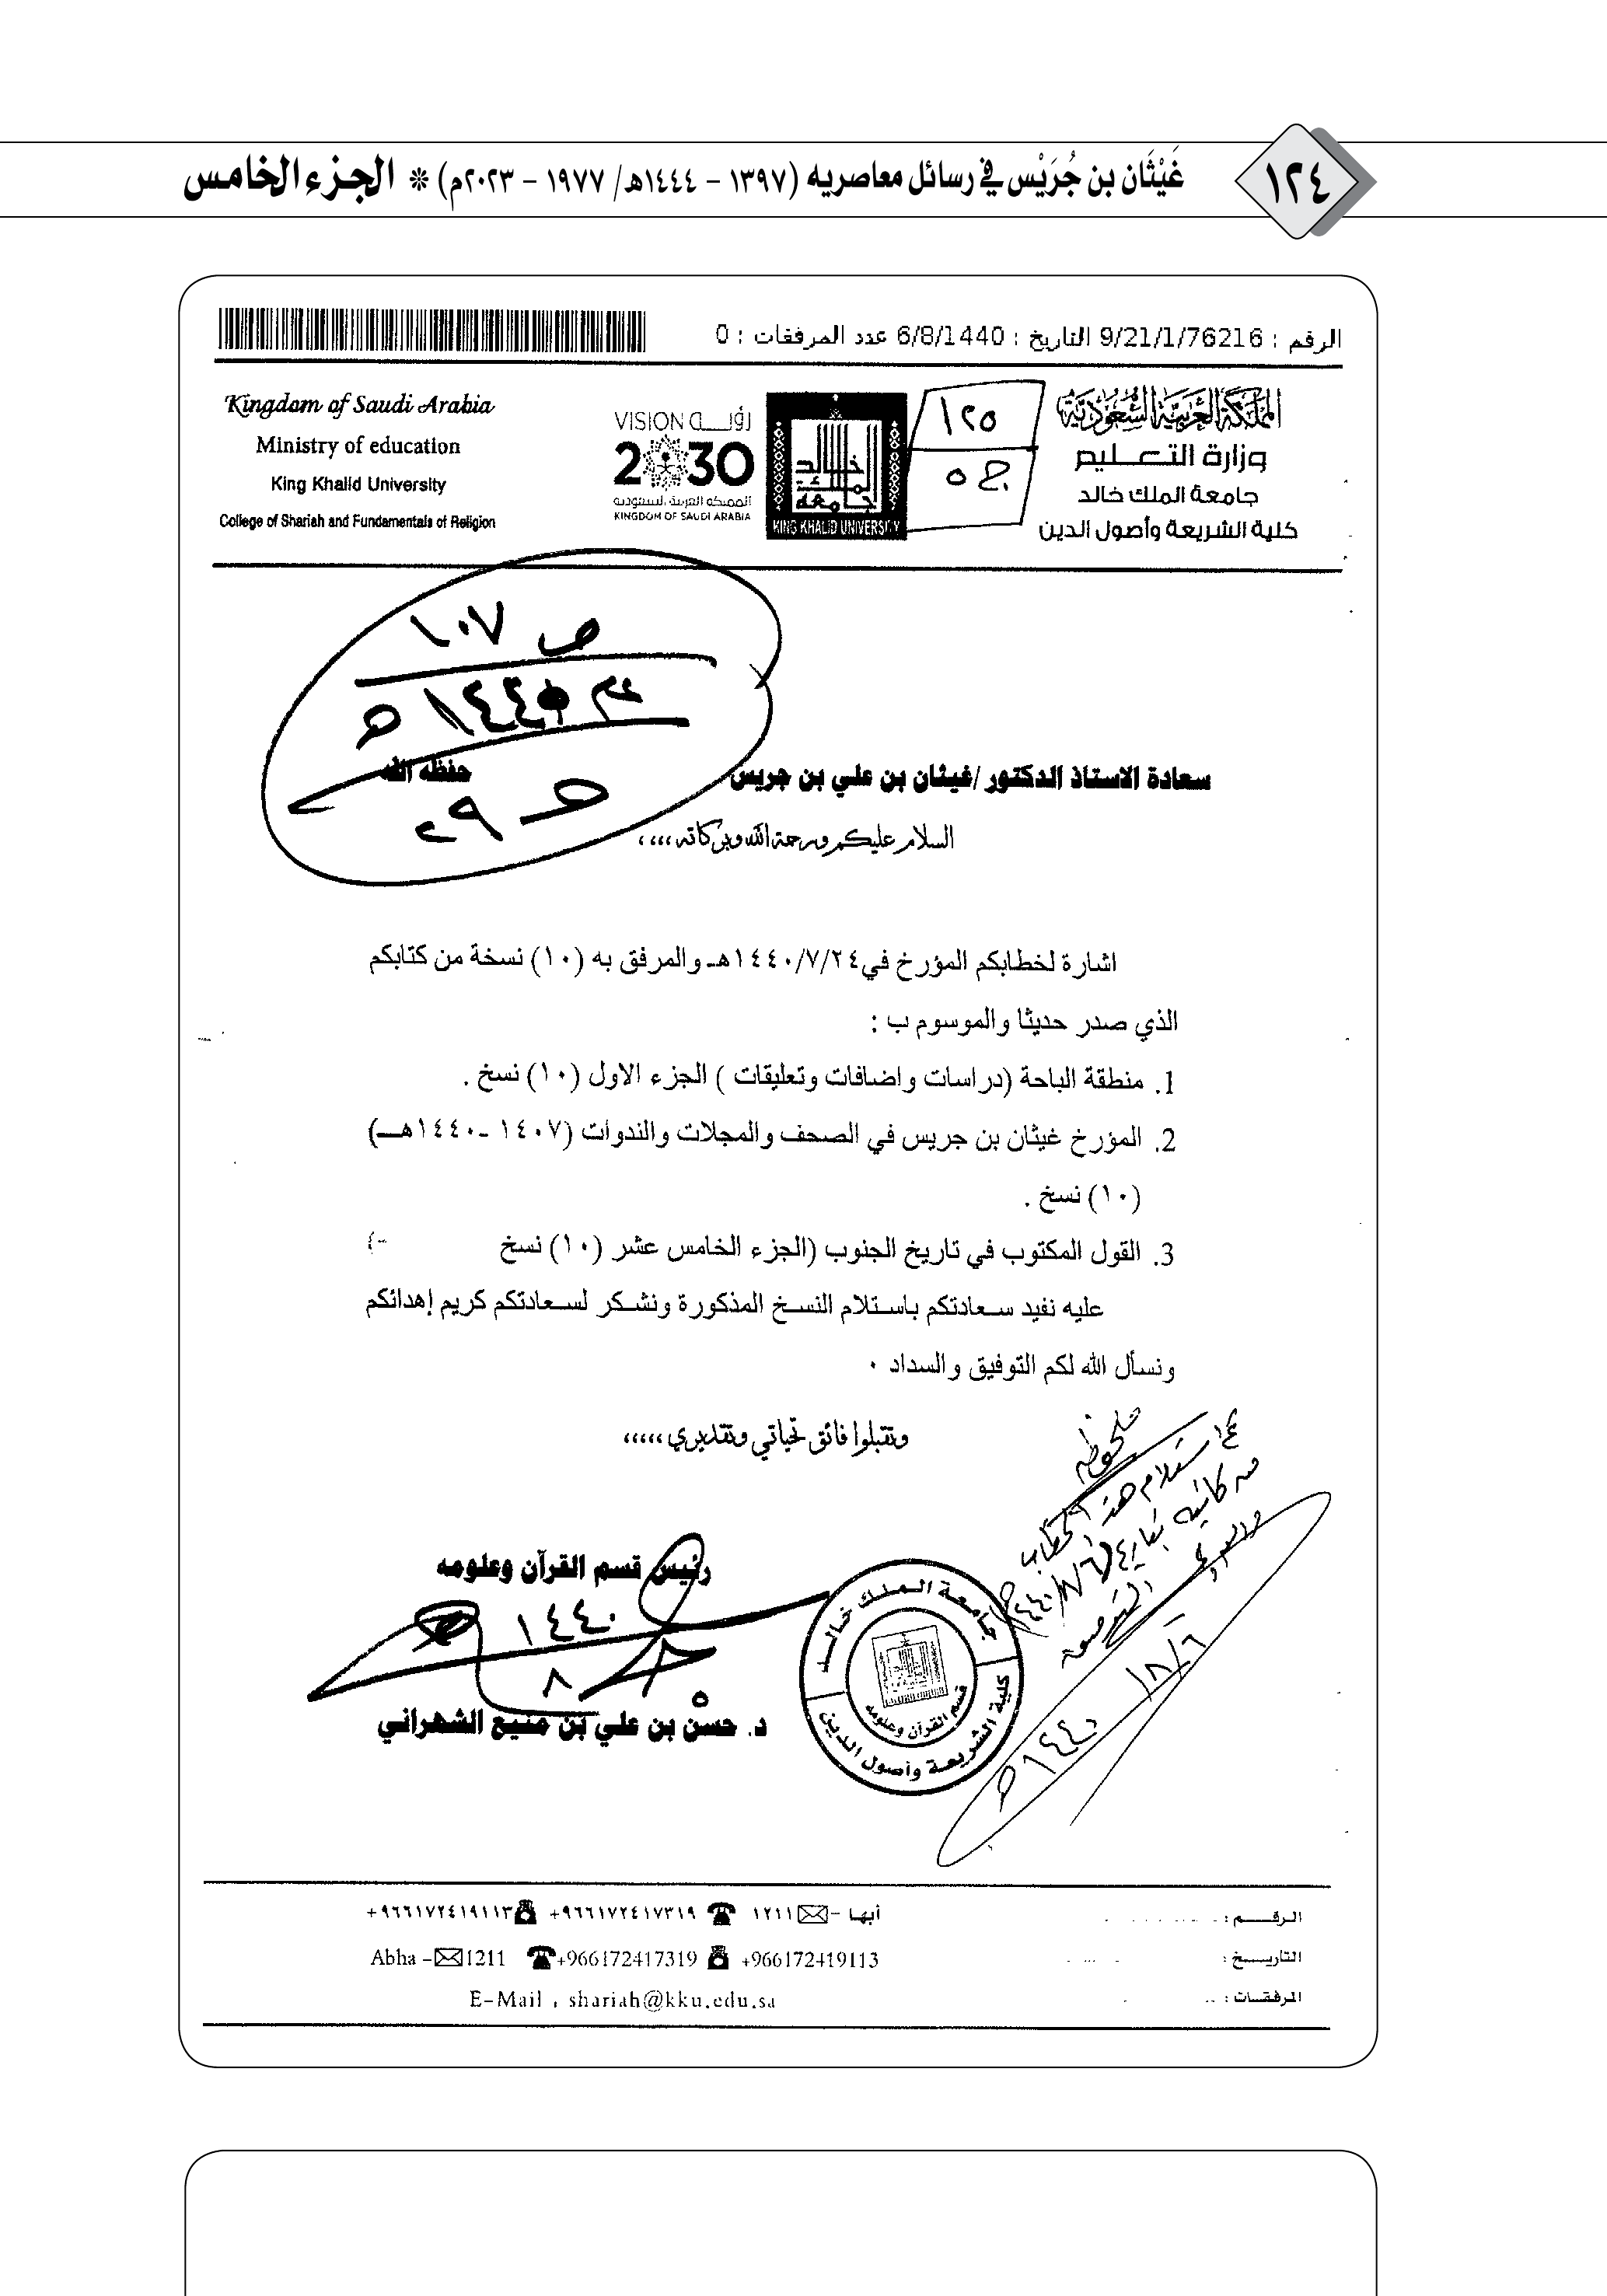 ١٢٤
غَيْثَان بن جُرَيْس في رسائل معاصريه (١٣٩٧ - ١٤٤٤هـ/ ١٩٧٧ - ٢٠٢٣م) * الجزء الخامس
الرقم : 9/21/1/76216 التاريخ : 6/8/1440 عدد المرفقات : 0
المملكة العربية السعودية
وزارة التعليم
جامعة الملك خالد
كلية الشريعة وأصول الدين
١٢٥
ج ٥
خالد
الملك
جامعة
KING KHALID UNIVERSITY
VISION رؤيـــة
2030
المملكة العربية السعودية
KINGDOM OF SAUDI ARABIA
Kingdom of Saudi Arabia
Ministry of education
King Khalid University
College of Shariah and Fundamentals of Religion
ص ١٠٧
١٤٤٠هـ
ح ٢٩
سعادة الاستاذ الدكتور /غيثان بن علي بن جريس حفظه الله
السلام عليكم ورحمة الله وبركاته ،،،،
اشارة لخطابكم المؤرخ في١٤٤٠/٧/٢٤هـ والمرفق به (١٠) نسخة من كتابكم
الذي صدر حديثا والموسوم ب :
1. منطقة الباحة (دراسات واضافات وتعليقات ) الجزء الاول (١٠) نسخ .
2. المؤرخ غيثان بن جريس في الصحف والمجلات والندوات (١٤٠٧ -١٤٤٠هـــ)
(١٠) نسخ .
3. القول المكتوب في تاريخ الجنوب (الجزء الخامس عشر (١٠) نسخ
عليه نفيد سعادتكم باستلام النسخ المذكورة ونشكر لسعادتكم كريم إهدائكم
ونسأل الله لكم التوفيق والسداد ٠
وتقبلوا فائق تحياتي وتقديري ،،،،،
ملحوظه
استلام هذا الخطاب
من كاتبه بتاريخ
١٤٤٠/٨/٦هـ
٨/٦
١٤٤٠هـ
رئيس قسم القرآن وعلومه
١٤٤٠
٨
٥
د. حسن بن علي بن منيع الشهراني
جامعة الملك خالد
كلية الشريعة وأصول الدين
قسم القرآن وعلومه
الرقـــم :
التاريـــخ :
المرفقـات :
أبها - ١٢١١ ٩٦٦١٧٢٤١٧٣١٩+ ٩٦٦١٧٢٤١٩١١٣+
Abha - 1211 +966172417319 +966172419113
E-Mail : shariah@kku.edu.sa